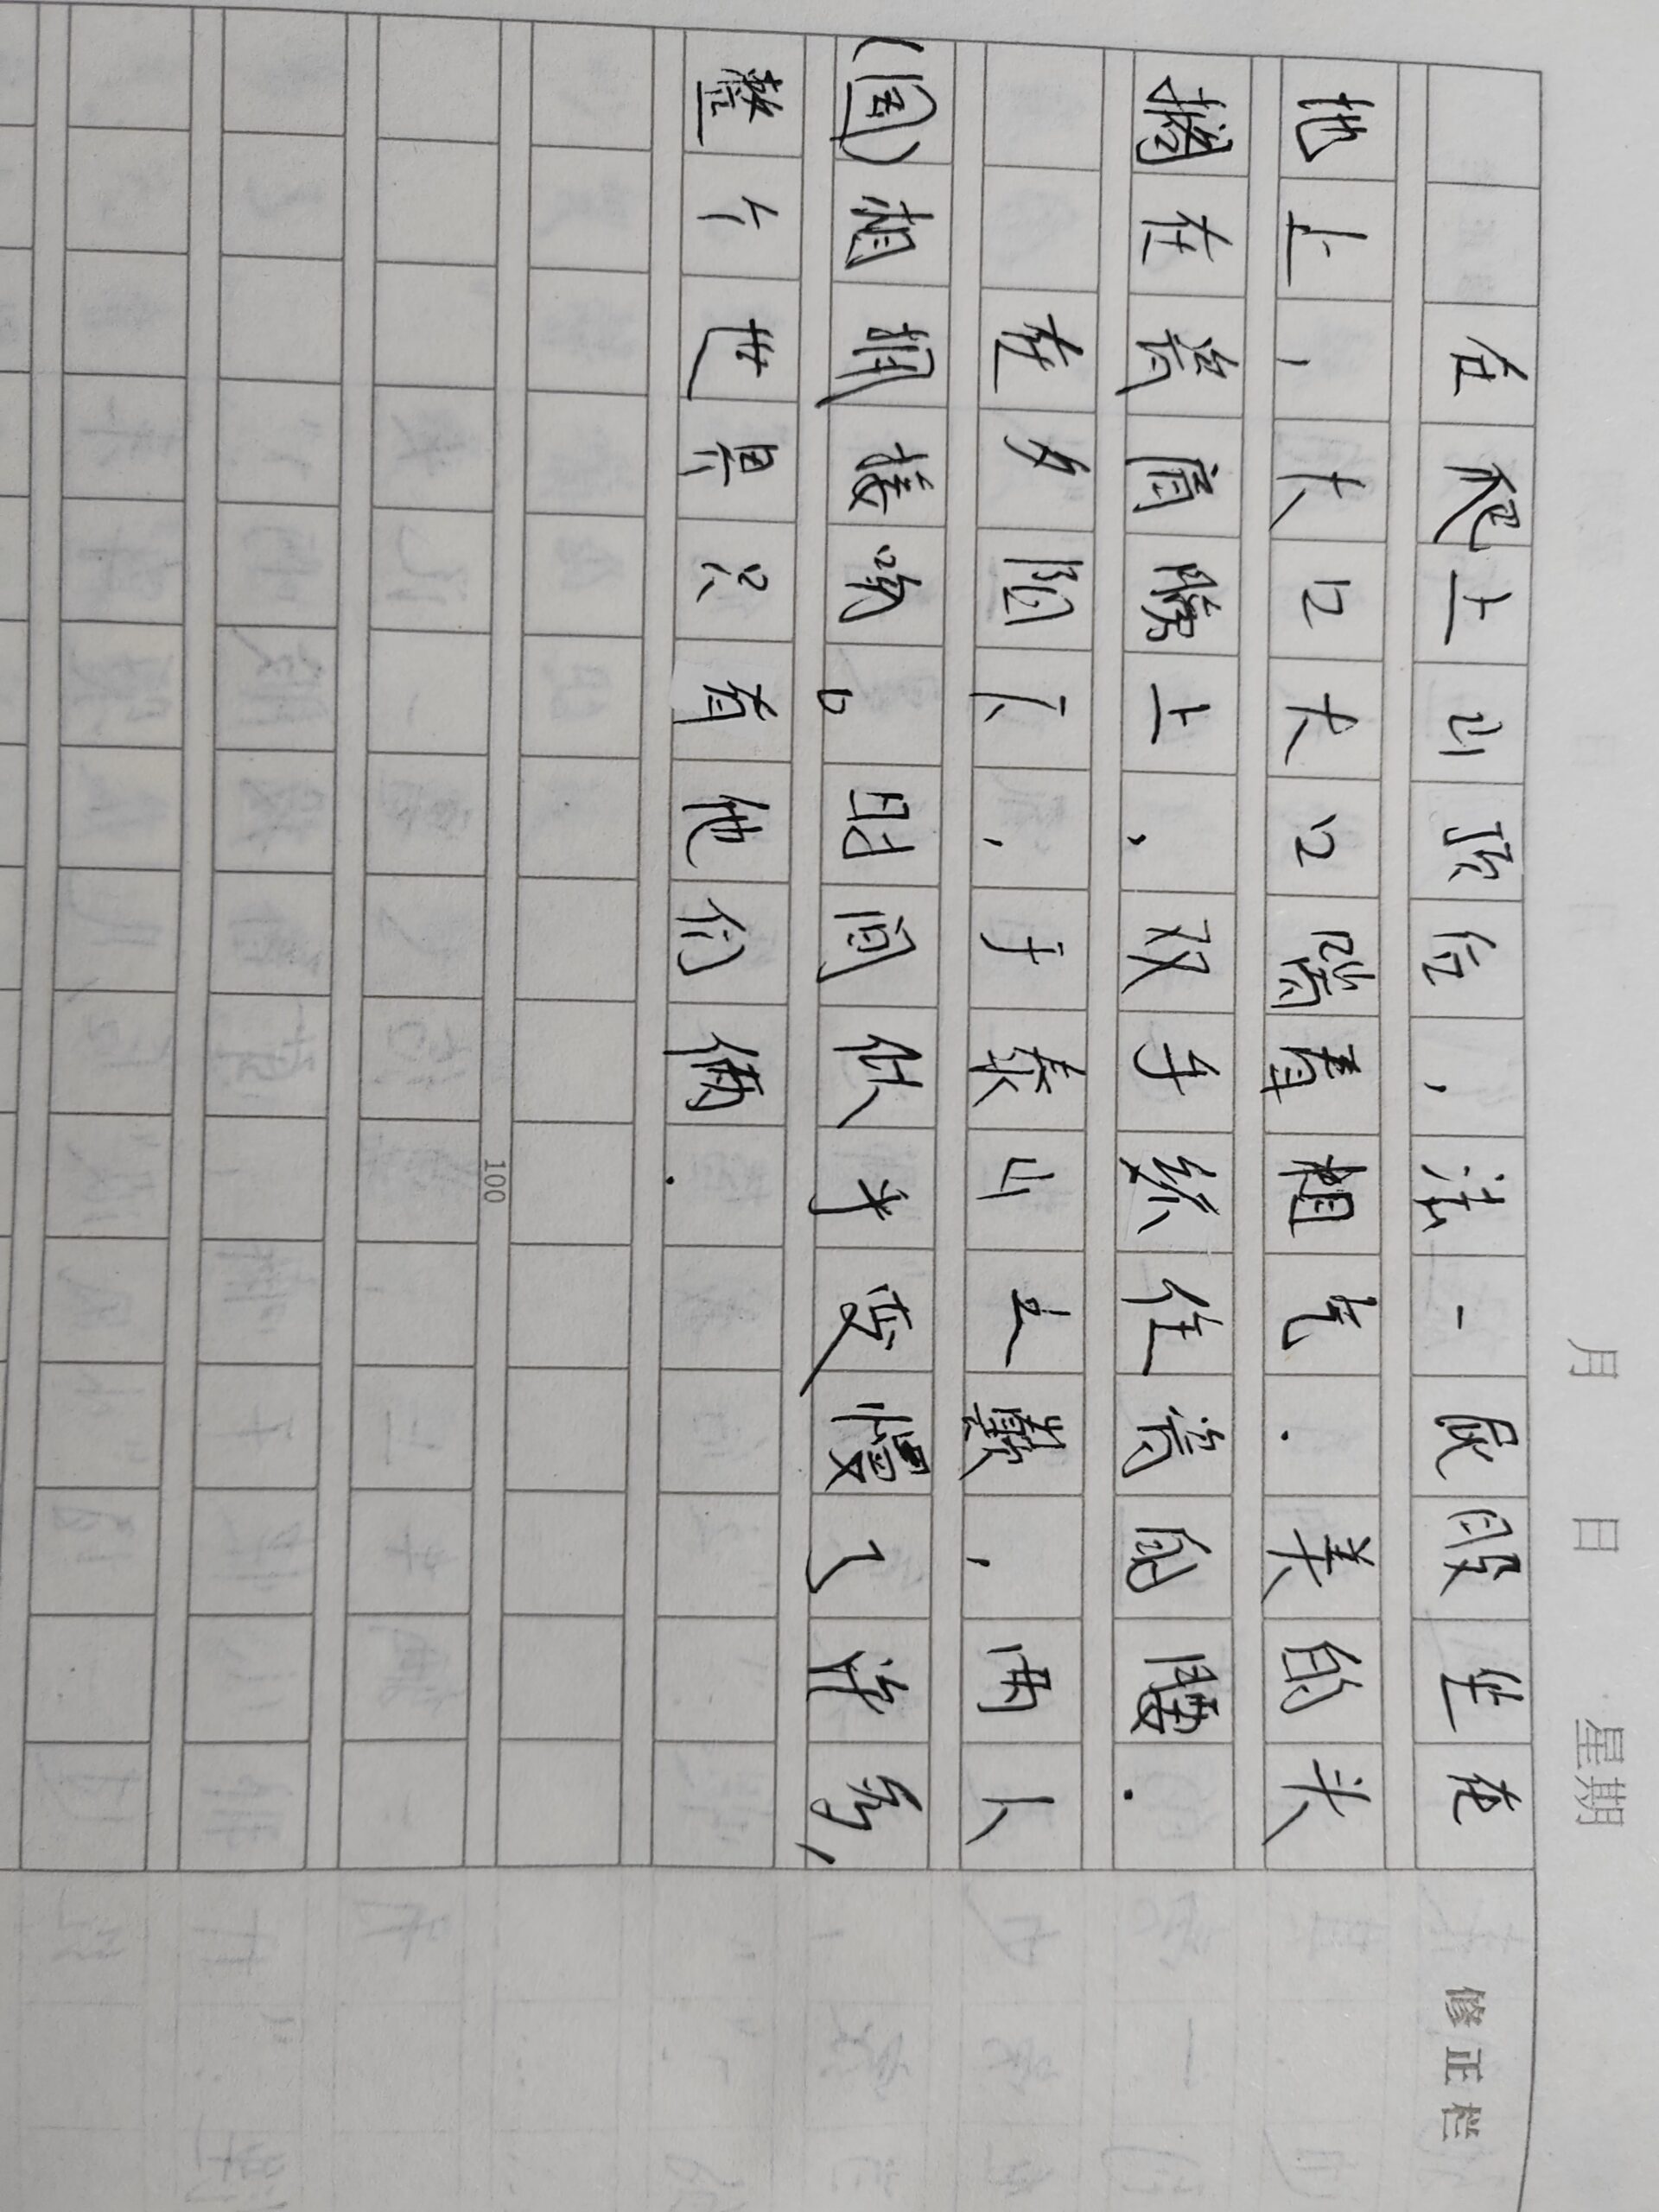 月 日 星期
在爬上山顶后,洁一屁股坐在
地上,大口大口喘着粗气.美的头
搁在洁肩膀上,双手住洁的腰.
在夕阳下,于泰山之巅,两人
相拥接吻。时间似乎变慢了许多,
整个世界只有他们俩.
100
修正栏